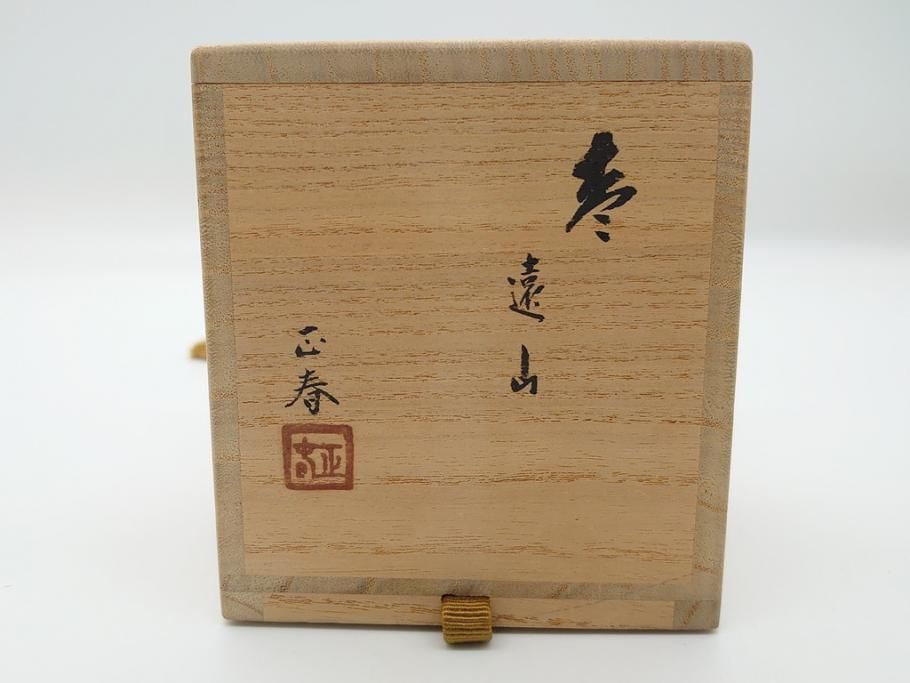 棗
遠山
正春